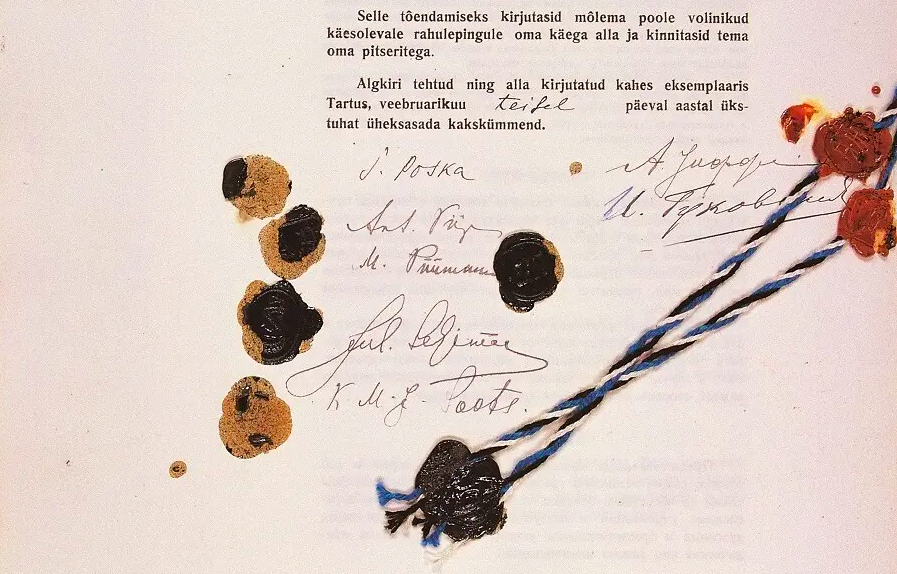 Selle tõendamiseks kirjutasid mõlema poole volinikud
käesolevale rahulepingule oma käega alla ja kinnitasid tema
oma pitseritega.
Algkiri tehtud ning alla kirjutatud kahes eksemplaaris
Tartus, veebruarikuu teisel päeval aastal üks-
tuhat üheksasada kakskümmend.
J. Poska
А. Иоффе
Ant. Piip
И. Гуковский
M. Püümann
Jul. Seljamaa
K M. J. Soots.